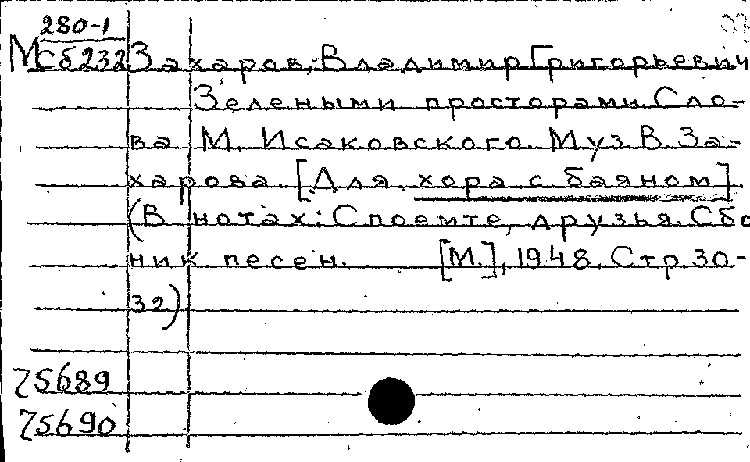 280-1
М Сб232 Захаров, Владимир Григорьевич
Зелеными просторами. Сло-
ва М. Исаковского. Муз. В. За-
харова. [Для хора с баяном]
(В нотах: Споемте, друзья. Сбо
ник песен. [М.], 1948. Стр. 30-
32)
75689
75690